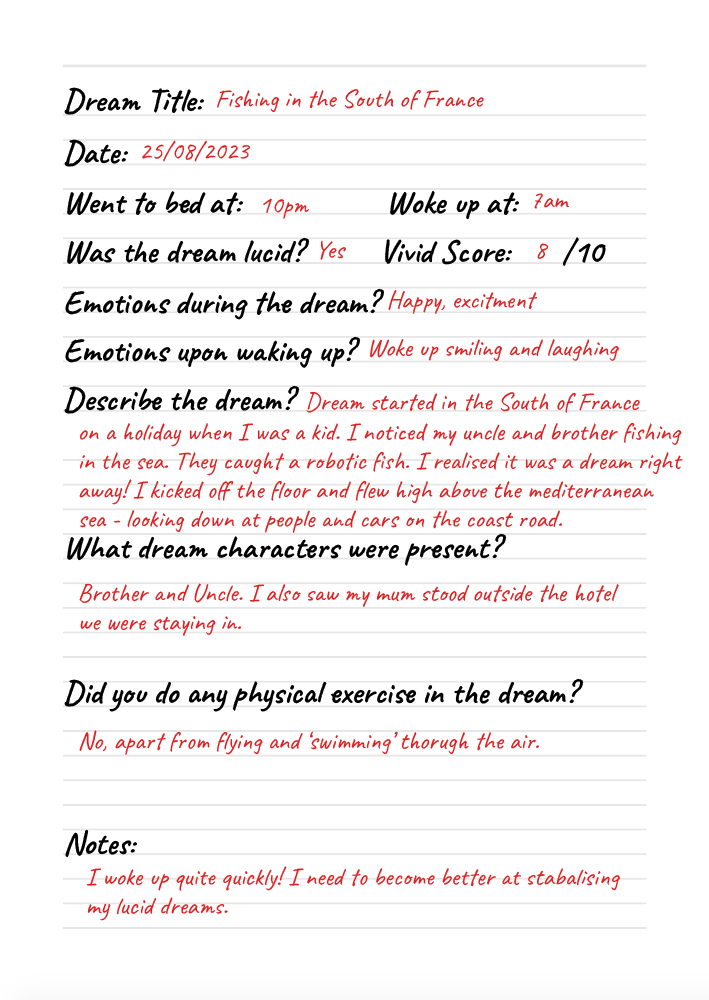 Dream Title: Fishing in the South of France
Date: 25/08/2023
Went to bed at: 10pm Woke up at: 7am
Was the dream lucid? Yes Vivid Score: 8 /10
Emotions during the dream? Happy, excitment
Emotions upon waking up? Woke up smiling and laughing
Describe the dream? Dream started in the South of France
on a holiday when I was a kid. I noticed my uncle and brother fishing
in the sea. They caught a robotic fish. I realised it was a dream right
away! I kicked off the floor and flew high above the mediterranean
sea - looking down at people and cars on the coast road.
What dream characters were present?
Brother and Uncle. I also saw my mum stood outside the hotel
we were staying in.
Did you do any physical exercise in the dream?
No, apart from flying and ‘swimming’ thorugh the air.
Notes:
I woke up quite quickly! I need to become better at stabalising
my lucid dreams.